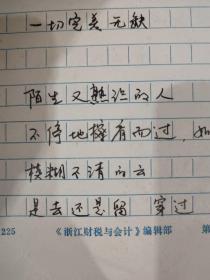 一切完美无缺
陌生又熟识的人
不停地擦肩而过，如
模糊不清的云
是去还是留 穿过
225 《浙江财税与会计》编辑部 第